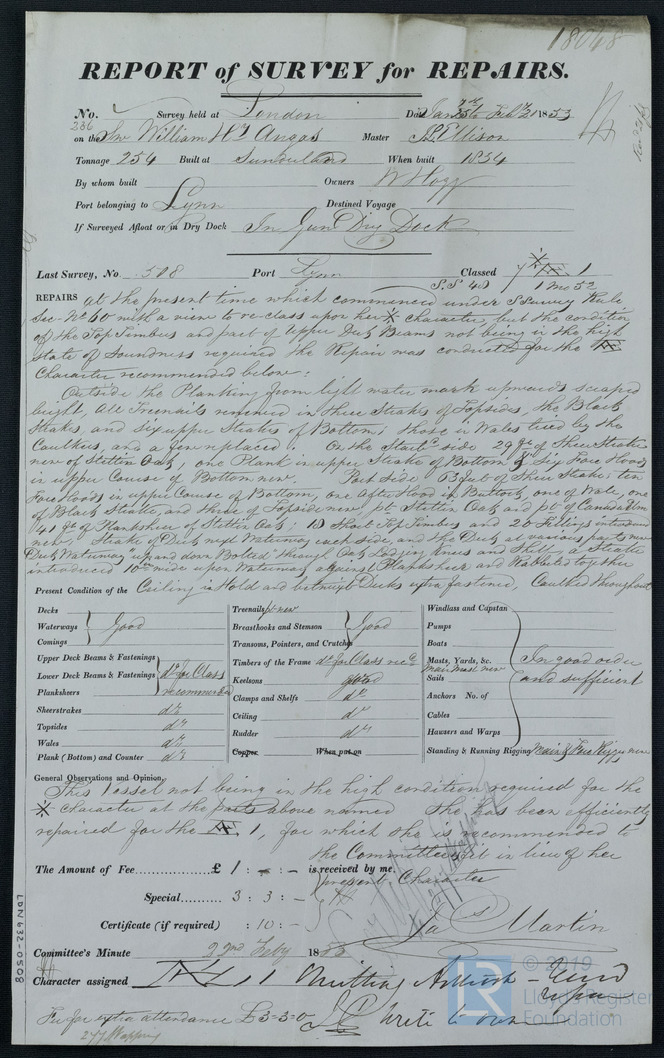 18048
REPORT of SURVEY for REPAIRS.
No. 236 Survey held at London Date Jan 7th Feby 2 1853
on the Sw William Hy Angas Master Ellison
Tonnage 254 Built at Sunderland When built 1834
By whom built Owners W Hogg
Port belonging to Lynn Destined Voyage
If Surveyed Afloat or in Dry Dock In Gun Dry Dock
Last Survey, No. 508 Port Lynn Classed 1
S.S 40 1 Mo 52
REPAIRS at the present time which commenced under S Survey Rule
Sec. No 60 with a view to re-class upon her Character, but the condition
of the Top Timbers and part of Upper Beams not being in the high
State of Soundness required the Repair was conducted for the Æ
Character recommended below:
Outside the Planking from light water mark upwards scraped
bright, all Treenails renewed in three Strakes of Topsides, the Black
Strake, and six upper Strakes of Bottom; those in Wales tried by the
Caulkers, and a few replaced; On the Starbd side 29 of Sheer Strake
new of Stettin Oak, one Plank in upper Strake of Bottom & Six Fore Hoods
in upper Course of Bottom new. Port Side 63 feet of Sheer Strake; ten
Fore Hoods in upper Course of Bottom, one After Hood in Buttock, one of Wale, one
of Black Strake, and three of Topside new, pt Stettin Oak and pt of Canada Elm
41 ft of Planksheer of Stettin Oak; 10 Short Top Timbers and 20 Fillings introduced
new; Strake of Deck next Waterway each side, and the Deck at various parts new
Deck Waterway "up and down Bolted" through Oak Lodging Knees and Shelf, a Strake
introduced 10 ins wide upon Waterway against Planksheer and Rabbeted together
Present Condition of the Ceiling in Hold and betwixt Decks extra fastened, Caulked throughout
Decks
Waterways Good
Comings
Upper Deck Beams & Fastenings
Lower Deck Beams & Fastenings do for Class
Planksheers recommended
Sheerstrakes do
Topsides do
Wales do
Plank (Bottom) and Counter do
Treenails pt new
Breasthooks and Stemson Good
Transoms, Pointers, and Crutches
Timbers of the Frame do for Class rec
Keelsons good
Clamps and Shelfs do
Ceiling do
Rudder do
Copper When put on
Windlass and Capstan
Pumps
Boats
Masts, Yards, &c. In good order
Main Mast new
Sails and sufficient
Anchors No. of
Cables
Hawsers and Warps
Standing & Running Rigging Main & Fore Rigging new
General Observations and Opinion,
This Vessel not being in the high condition required for the
Character at the parts above named She has been efficiently
repaired for the Æ 1, for which she is recommended to
the Committee in lieu of her
The Amount of Fee £ 1 : - : - is received by me,
present Character
Special 3 : 3 : -
Certificate (if required) : 10 : -
Jas Martin
Committee's Minute 22nd Feby 1853
Character assigned Æ 1
Fee for extra attendance £3-3-0 write to own
277 Wapping
LDN 632-0508
© 2019
Lloyd's Register
Foundation